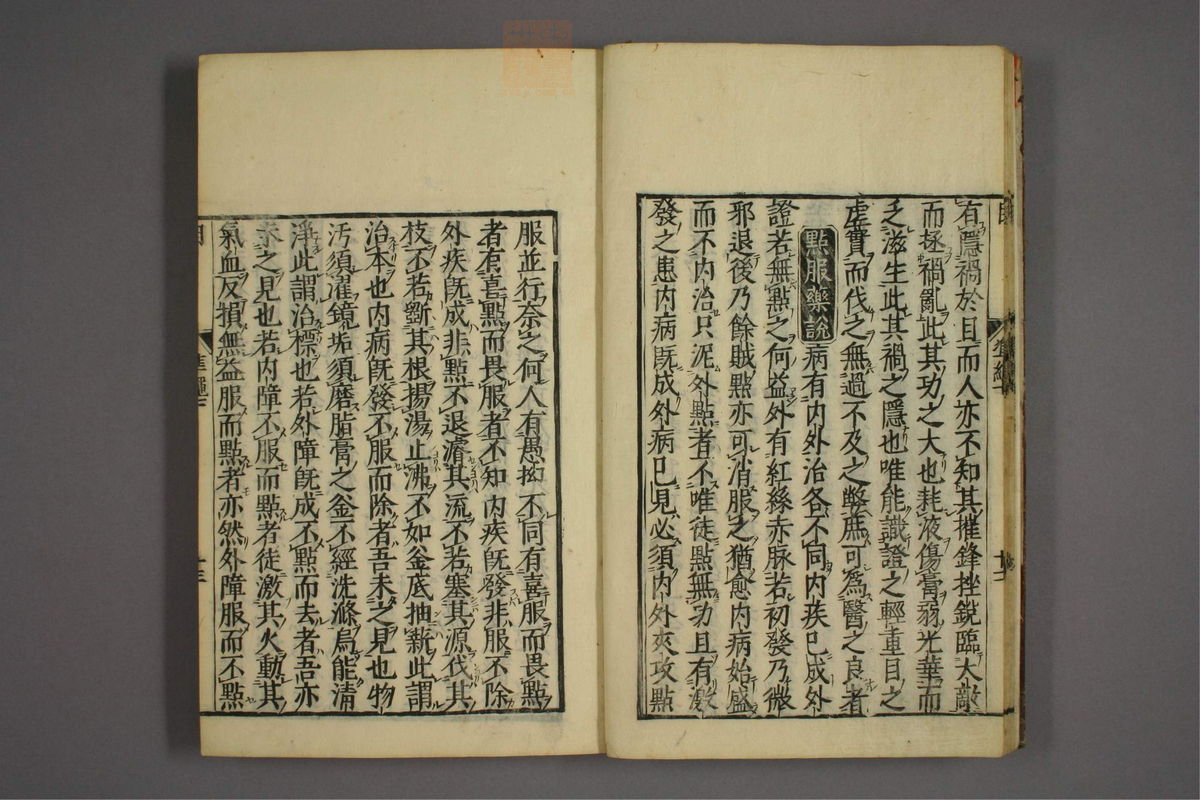 有隱禍於目而人亦不知其摧鋒挫銳臨大敵
而拯禍亂此其功之大也耗液傷膏弱光華而
乏滋生此其禍之隱也唯能識證之輕重目之
虛實而伐之無過不及之弊庶可為醫之良者
點服藥說
病有內外治各不同內疾已成外
證若無點之何益外有紅絲赤脉若初發乃微
邪退後乃餘賊點亦可消服之猶愈內病始盛
而不內治只泥外點者不唯徒點無功且有激
發之患內病既成外病已見必須內外夾攻點
服並行奈之何人有愚拗不同有喜服而畏點
者有喜點而畏服者不知內疾既發非服不除
外疾既成非點不退濬其流不若塞其源伐其
枝不若斷其根揚湯止沸不如釜底抽薪此謂
治本也內病既發不服而除者吾未之見也物
污須濯鏡垢須磨脂膏之釜不經洗滌烏能清
淨此謂治標也若外障既成不點而去者吾亦
未之見也若內障不服而點者徒激其火動其
氣血反損無益服而點者亦然外障服而不點